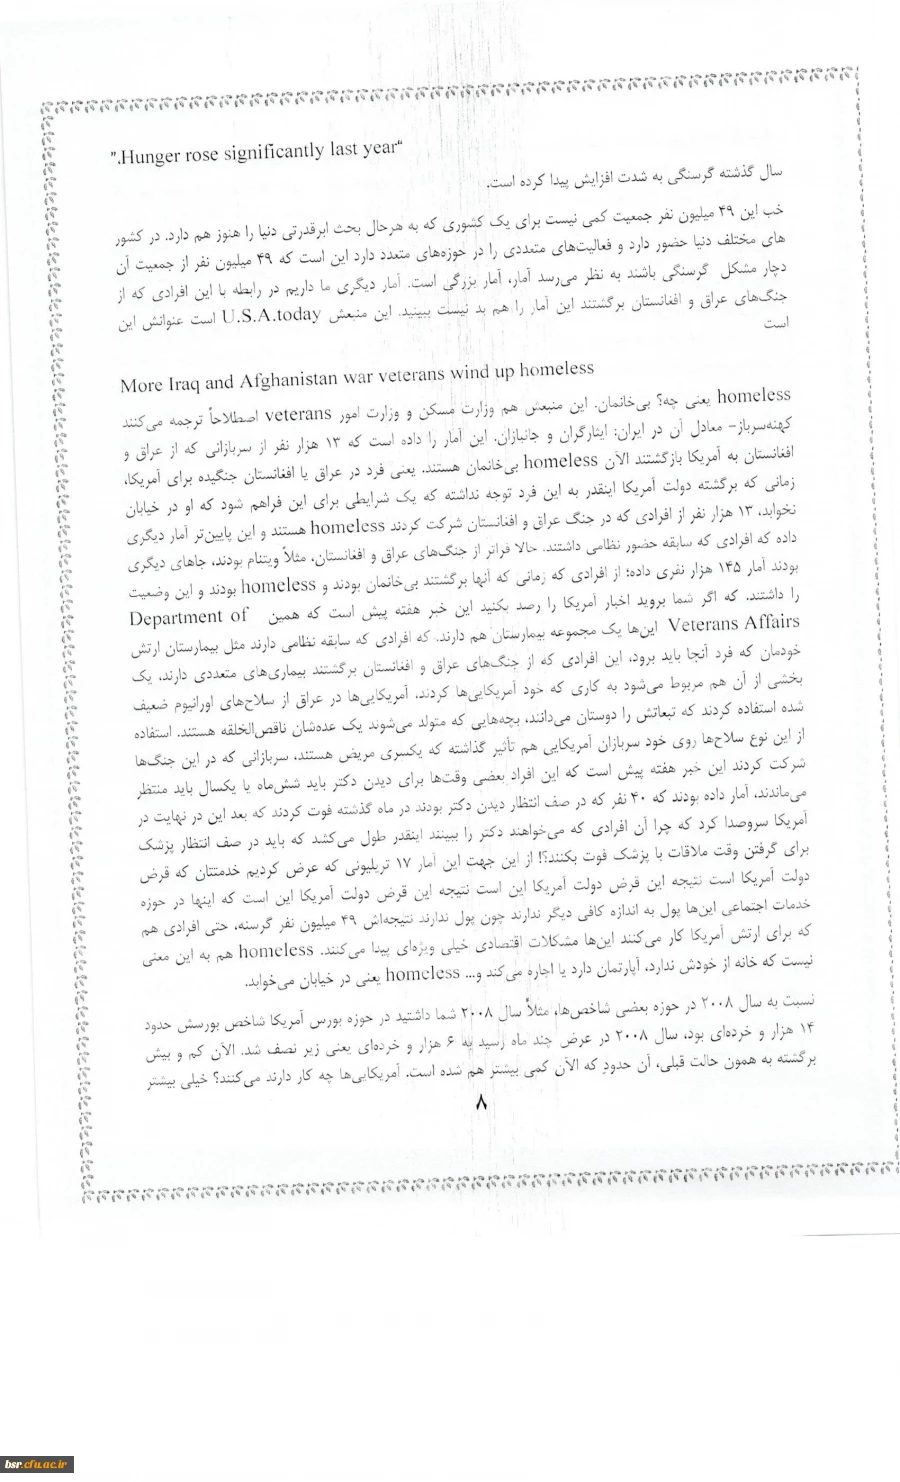 ".Hunger rose significantly last year"
سال گذشته گرسنگی به شدت افزایش پیدا کرده است.
خب این ۴۹ میلیون نفر جمعیت کمی نیست برای یک کشوری که به هرحال بحث ابرقدرتی دنیا را هنوز هم دارد. در کشور
های مختلف دنیا حضور دارد و فعالیت‌های متعددی را در حوزه‌های متعدد دارد این است که ۴۹ میلیون نفر از جمعیت آن
دچار مشکل گرسنگی باشند به نظر می‌رسد آمار، آمار بزرگی است. آمار دیگری ما داریم در رابطه با این افرادی که از
جنگ‌های عراق و افغانستان برگشتند این آمار را هم بد نیست ببینید. این منبعش U.S.A.today است عنوانش این
است
More Iraq and Afghanistan war veterans wind up homeless
homeless یعنی چه؟ بی‌خانمان. این منبعش هم وزارت مسکن و وزارت امور veterans اصطلاحاً ترجمه می‌کنند
کهنه‌سرباز- معادل آن در ایران: ایثارگران و جانبازان. این آمار را داده است که ۱۳ هزار نفر از سربازانی که از عراق و
افغانستان به آمریکا بازگشتند الآن homeless بی‌خانمان هستند. یعنی فرد در عراق یا افغانستان جنگیده برای آمریکا،
زمانی که برگشته دولت آمریکا اینقدر به این فرد توجه نداشته که یک شرایطی برای این فراهم شود که او در خیابان
نخوابد، ۱۳ هزار نفر از افرادی که در جنگ عراق و افغانستان شرکت کردند homeless هستند و این پایین‌تر آمار دیگری
داده که افرادی که سابقه حضور نظامی داشتند. حالا فراتر از جنگ‌های عراق و افغانستان، مثلاً ویتنام بودند، جاهای دیگری
بودند آمار ۱۴۵ هزار نفری داده؛ از افرادی که زمانی که آنها برگشتند بی‌خانمان بودند و homeless بودند و این وضعیت
را داشتند. که اگر شما بروید اخبار آمریکا را رصد بکنید این خبر هفته پیش است که همین Department of
Veterans Affairs این‌ها یک مجموعه بیمارستان هم دارند. که افرادی که سابقه نظامی دارند مثل بیمارستان ارتش
خودمان که فرد آنجا باید برود، این افرادی که از جنگ‌های عراق و افغانستان برگشتند بیماری‌های متعددی دارند، یک
بخشی از آن هم مربوط می‌شود به کاری که خود آمریکایی‌ها کردند، آمریکایی‌ها در عراق از سلاح‌های اورانیوم ضعیف
شده استفاده کردند که تبعاتش را دوستان می‌دانند، بچه‌هایی که متولد می‌شوند یک عده‌شان ناقص‌الخلقه هستند. استفاده
از این نوع سلاح‌ها روی خود سربازان آمریکایی هم تأثیر گذاشته که یکسری مریض هستند، سربازانی که در این جنگ‌ها
شرکت کردند این خبر هفته پیش است که این افراد بعضی وقت‌ها برای دیدن دکتر باید شش‌ماه یا یکسال باید منتظر
می‌ماندند، آمار داده بودند که ۴۰ نفر که در صف انتظار دیدن دکتر بودند در ماه گذشته فوت کردند که بعد این در نهایت در
آمریکا سروصدا کرد که چرا آن افرادی که می‌خواهند دکتر را ببینند اینقدر طول می‌کشد که باید در صف انتظار پزشک
برای گرفتن وقت ملاقات با پزشک فوت بکنند؟! از این جهت این آمار ۱۷ تریلیونی که عرض کردیم خدمتتان که قرض
دولت آمریکا است نتیجه این قرض دولت آمریکا این است نتیجه این قرض دولت آمریکا این است که اینها در حوزه
خدمات اجتماعی این‌ها پول به اندازه کافی دیگر ندارند چون پول ندارند نتیجه‌اش ۴۹ میلیون نفر گرسنه، حتی افرادی هم
که برای ارتش آمریکا کار می‌کنند این‌ها مشکلات اقتصادی خیلی ویژه‌ای پیدا می‌کنند. homeless هم به این معنی
نیست که خانه از خودش ندارد، آپارتمان دارد یا اجاره می‌کند و... homeless یعنی در خیابان می‌خوابد.
نسبت به سال ۲۰۰۸ در حوزه بعضی شاخص‌ها، مثلاً سال ۲۰۰۸ شما داشتید در حوزه بورس آمریکا شاخص بورسش حدود
۱۴ هزار و خرده‌ای بود، سال ۲۰۰۸ در عرض چند ماه رسید به ۶ هزار و خرده‌ای یعنی زیر نصف شد. الآن کم و بیش
برگشته به همون حالت قبلی، آن حدودِ که الآن کمی بیشتر هم شده است. آمریکایی‌ها چه کار دارند می‌کنند؟ خیلی بیشتر
۸
bsr.cfu.ac.ir